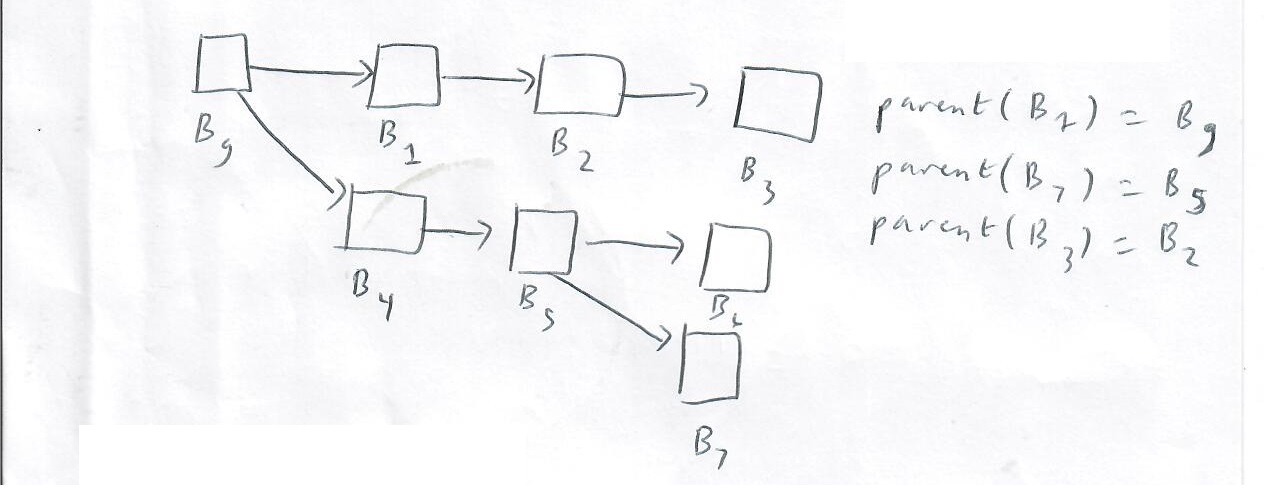 B₉ B₁ B₂ B₃
B₄ B₅ B₆
B₇
parent(B₁) = B₉
parent(B₇) = B₅
parent(B₃) = B₂